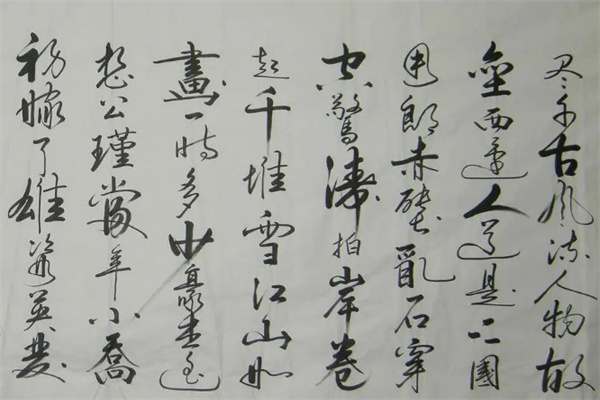 尽千古风流人物故
壘西邊人道是三國
周郎赤壁亂石穿
空驚濤拍岸卷
起千堆雪江山如
畫一時多少豪杰遥
想公瑾當年小喬
初嫁了雄姿英發